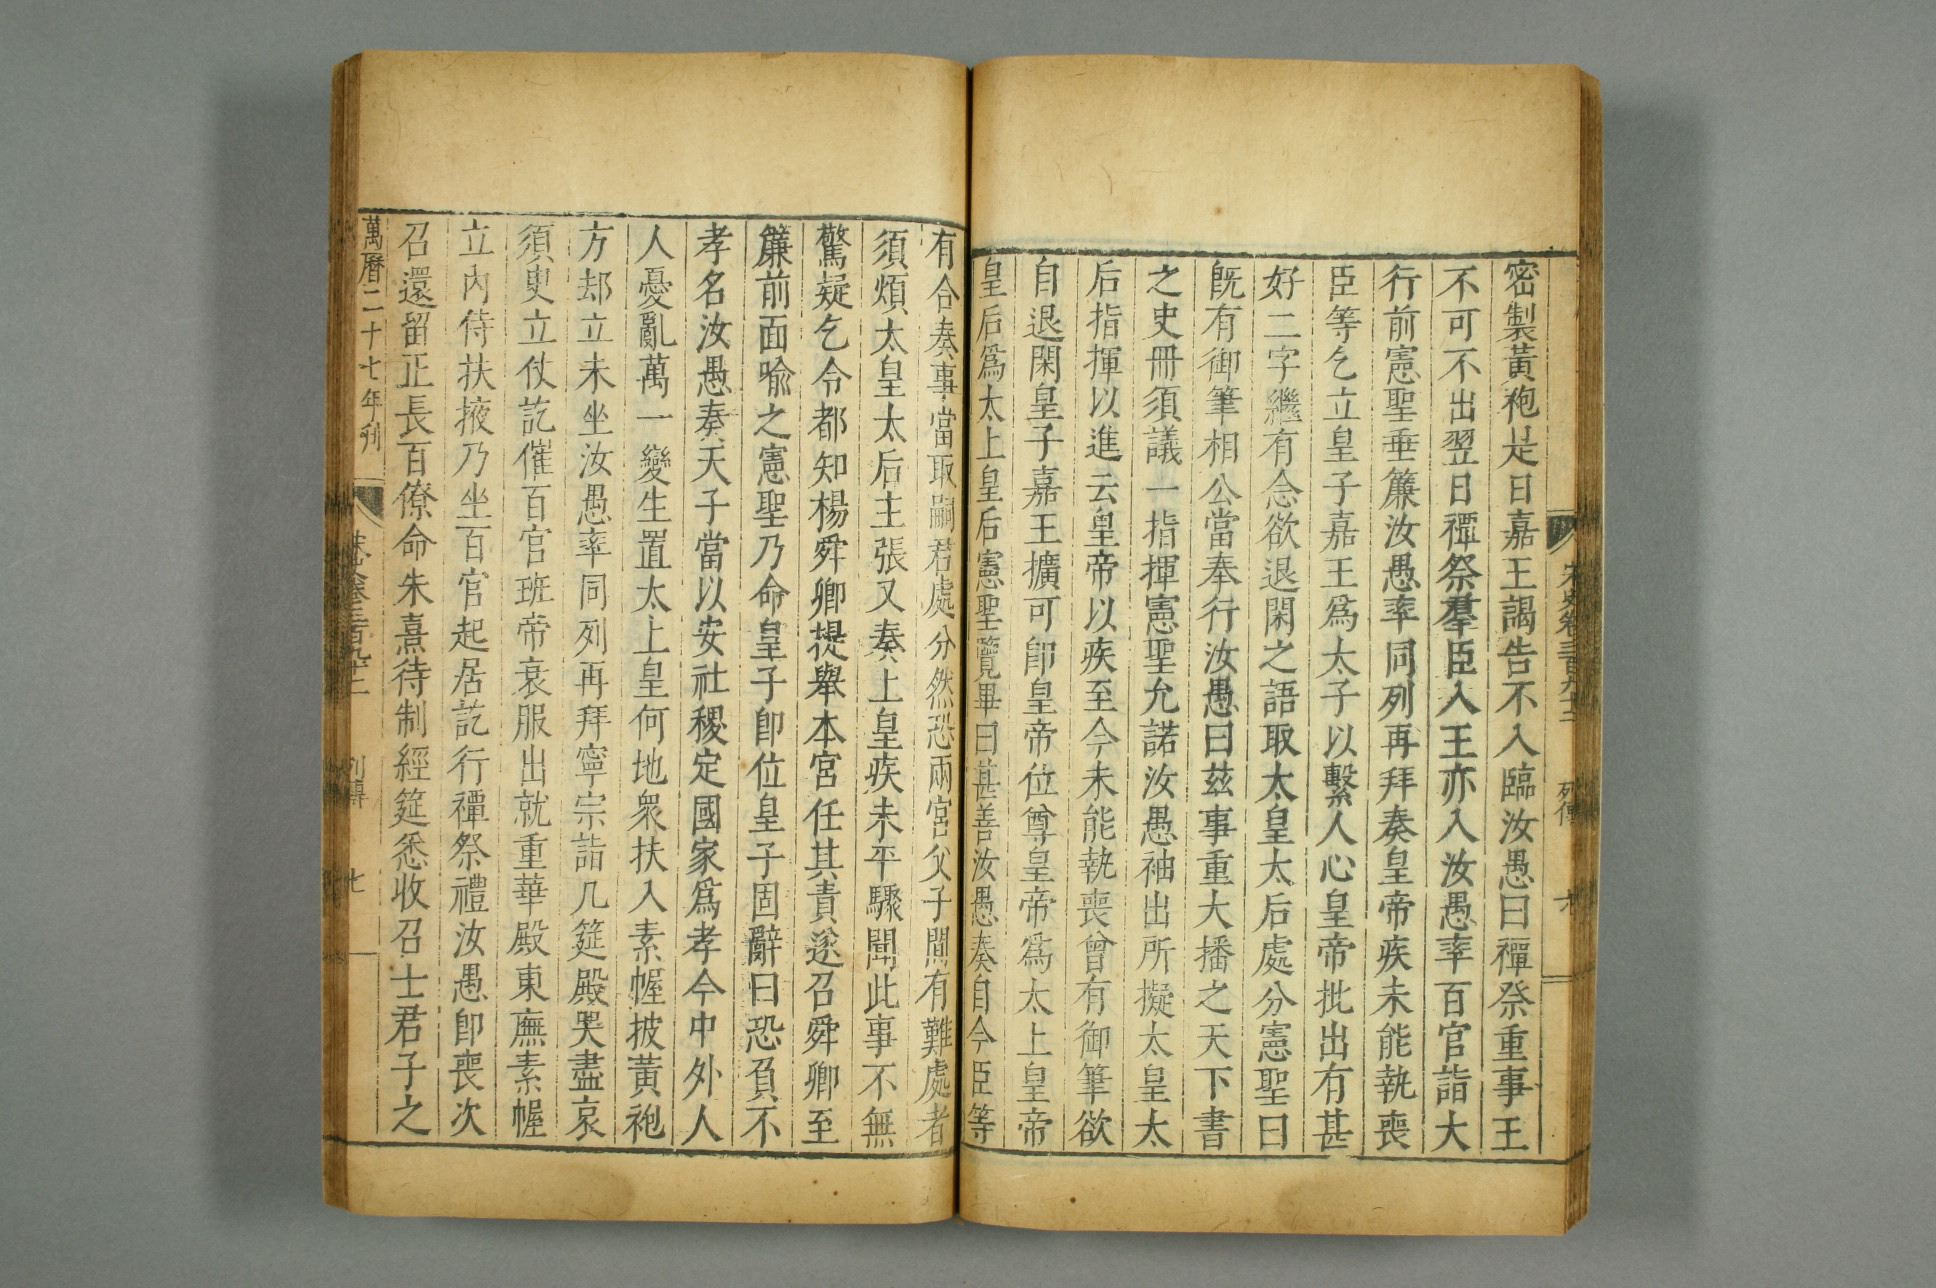 宋史卷三百九十二
列傳
六
密製黃袍是日嘉王謁告不入臨汝愚曰禫祭重事王
不可不出翌日禫祭羣臣入王亦入汝愚率百官詣大
行前憲聖垂簾汝愚率同列再拜奏皇帝疾未能執喪
臣等乞立皇子嘉王爲太子以繫人心皇帝批出有甚
好二字繼有念欲退閑之語取太皇太后處分憲聖曰
旣有御筆相公當奉行汝愚曰茲事重大播之天下書
之史冊須議一指揮憲聖允諾汝愚袖出所擬太皇太
后指揮以進云皇帝以疾至今未能執喪曾有御筆欲
自退閑皇子嘉王擴可卽皇帝位尊皇帝爲太上皇帝
皇后爲太上皇后憲聖覽畢曰甚善汝愚奏自今臣等
有合奏事當取嗣君處分然恐兩宮父子間有難處者
須煩太皇太后主張又奏上皇疾未平驟聞此事不無
驚疑乞令都知楊舜卿提舉本宮任其責遂召舜卿至
簾前面喻之憲聖乃命皇子卽位皇子固辭曰恐負不
孝名汝愚奏天子當以安社稷定國家爲孝今中外人
人憂亂萬一變生置太上皇何地衆扶入素幄披黃袍
方却立未坐汝愚率同列再拜寧宗詣几筵殿哭盡哀
須臾立仗訖催百官班帝衰服出就重華殿東廡素幄
立內侍扶掖乃坐百官起居訖行禫祭禮汝愚卽喪次
召還留正長百僚命朱熹待制經筵悉收召士君子之
萬曆二十七年刊
宋史卷三百九十二
列傳
七